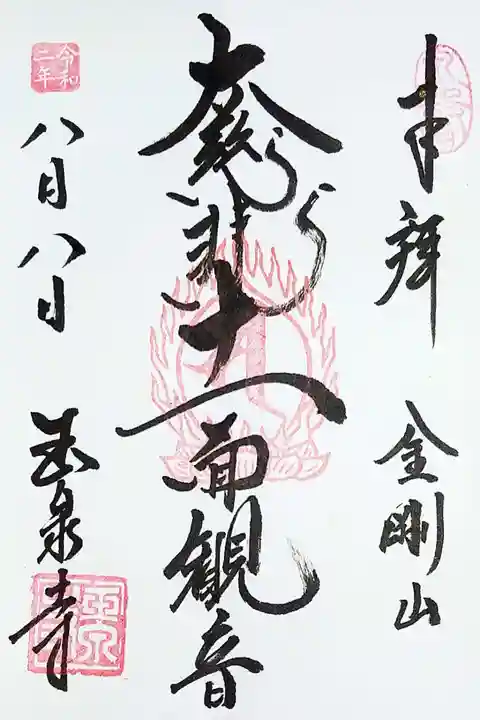 奉拝
金剛山
大慈悲
十一面観音
令和
二年
八月八日
玉泉寺